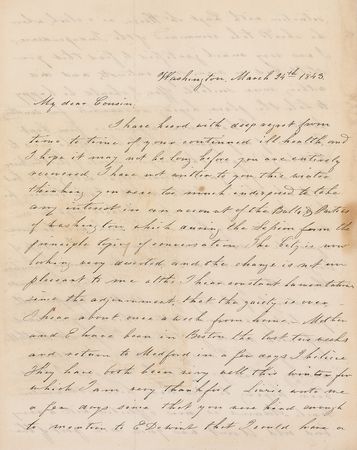 Washington, March 24th 1843.
My dear Cousin
I have heard with deep regret from
time to time of your continued ill health, and
I hope it may not be long before you are entirely
recovered. I have not written to you this winter
thinking you were too much indisposed to take
any interest in an account of the Balls & Parties
of Washington, which during the Session form the
principle topic of conversation. The City is now
looking very deserted and the change is not un
pleasant to me altho I hear constant lamentations
since the adjournment, that the gaiety is over.
I hear about once a week from home. Mother
and E have been in Boston the last two weeks
and return to Medford in a few days I believe
They have both been very well this winter for
which I am very thankful. wrote me
a few days since that you were kind enough
to mention to E that I could have a